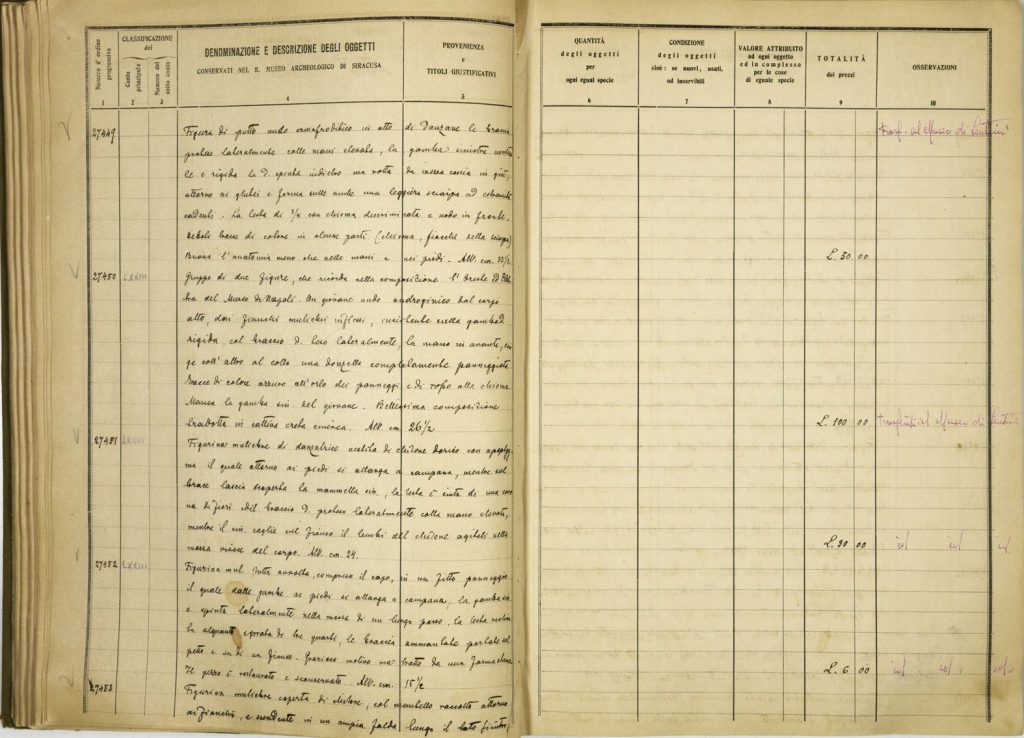 Numero d'ordine progressivo
CLASSIFICAZIONE dei
Conto principale
Numero del sotto conto
DENOMINAZIONE E DESCRIZIONE DEGLI OGGETTI
CONSERVATI NEL R. MUSEO ARCHEOLOGICO DI SIRACUSA
PROVENIENZA
e
TITOLI GIUSTIFICATIVI
QUANTITÀ
degli oggetti
per
ogni egual specie
CONDIZIONE
degli oggetti
cioè: se nuovi, usati,
od inservibili
VALORE ATTRIBUITO
ad ogni oggetto
ed in complesso
per le cose
di eguale specie
TOTALITÀ
dei prezzi
OSSERVAZIONI
1 2 3 4 5 6 7 8 9 10
27449 Figura di putto nudo ermafroditico in atto di danzare le braccia
protese lateralmente colle mani elevate, la gamba sinistra
e rigida la d. spinta indietro ma rotta da mezza coscia in giù,
attorno ai glutei e ferma sulle anche una leggiera sciarpa ad
cadenti. La testa di 3/4 con chioma e nodo in fronte.
Deboli tracce di colore in alcune parti (chioma, fiocchi della sciarpa)
Buona l'anatomia meno che nelle mani e nei piedi. Alt. cm.
L. 50 00
trasf. al Museo di Lentini
27450 LXXIII Gruppo di due figure, che ricorda nella composizione l'Oreste ed
del Museo di Napoli. Un giovane nudo androginico dal corpo
alto, dai fianchi muliebri inflessi, insistente sulla gamba d.
rigida, col braccio d. teso lateralmente, la mano in avanti,
coll'altro al collo una donzella completamente panneggiata
Tracce di colore azzurro all'orlo dei panneggi e di rosso alla chioma.
Manca la gamba sin. del giovane. Bellissima composizione
tradotta in cattiva creta cinerea. Alt. cm. 26 1/2
L. 100 00
trasferiti al Museo di Lentini
27451 LXXIII Figurina muliebre di danzatrice vestita di chitone dorico con
ma il quale attorno ai piedi si allarga a campana, mentre sul
torace lascia scoperta la mammella sin., la testa è cinta di una
na di fiori. Il braccio d. proteso lateralmente colla mano elevata,
mentre il sin. coglie sul fianco il lembi del chitone agitati nella
mossa vivace del corpo. Alt. cm. 24.
L. 30 00
id id id
27452 LXXIII Figurina mul. tutta avvolta, compreso il capo, in un fitto panneggio
il quale dalle gambe ai piedi si allarga a campana, la gamba
è spinta lateralmente nella mossa di un lungo passo, la testa
di tre quarti, le braccia ammantate portate al
petto e su di un fianco. Grazioso motivo ma tratto da una forma
Il pezzo è restaurato e sconservato. Alt. cm. 15 1/2
L. 6 00
id id id
27453 Figurina muliebre coperta di chitone, col mantello raccolto attorno
ai fianchi, e scendente in un ampia falda lungo il lato sinistro,